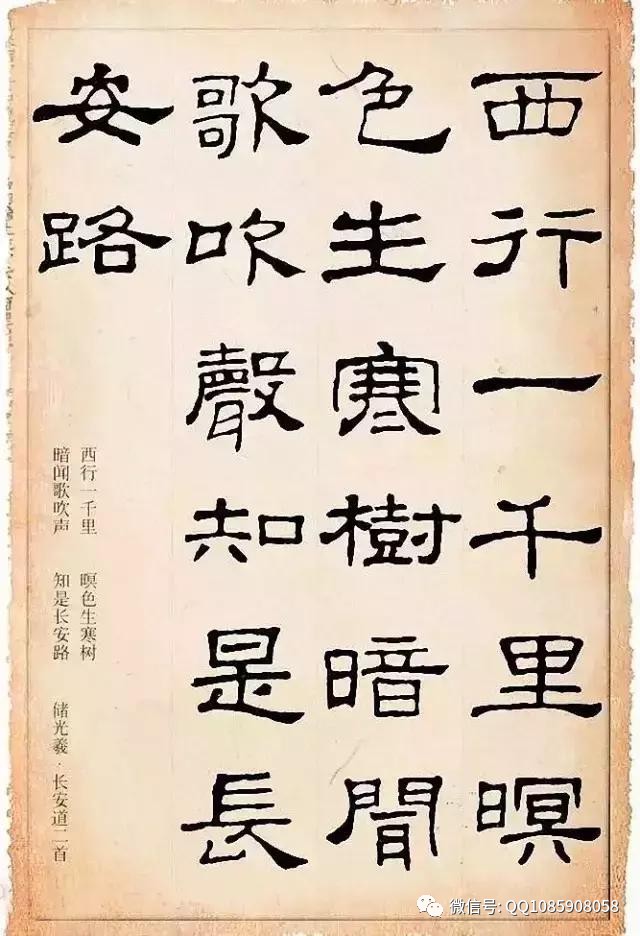 西行一千里暝
色生寒樹暗聞
歌吹聲知是長
安路
西行一千里 暝色生寒树
暗闻歌吹声 知是长安路 储光羲·长安道二首
微信号: QQ1085908058